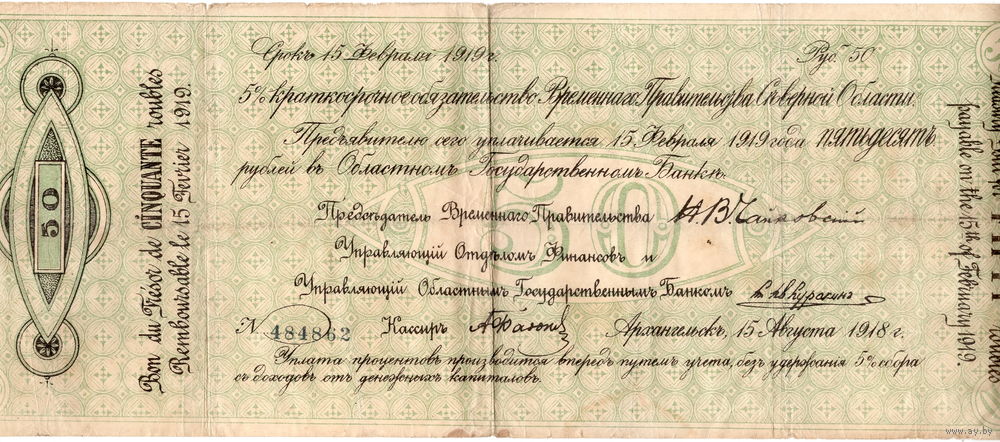 Срокъ 15 Февраля 1919 г. Руб. 50
5% краткосрочное обязательство Временнаго Правительства Сѣверной Области.
Предъявителю сего уплачивается 15 Февраля 1919 года пятьдесятъ
рублей въ Областномъ Государственномъ Банкѣ.
Предсѣдатель Временнаго Правительства Н.В. Чайковскій
Управляющій Отдѣломъ Финансовъ и
Управляющій Областнымъ Государственнымъ Банкомъ Куракинъ
№ 484862 Кассиръ Архангельскъ, 15 Августа 1918 г.
Уплата процентовъ производится впередъ путемъ учета, безъ удержания 5% сбора
съ доходовъ отъ денежныхъ капиталовъ.
50
50
Bon du Trésor de CINQUANTE roubles
Remboursable le 15 Février 1919.
payable on the 15th of February 1919.
www.ay.by